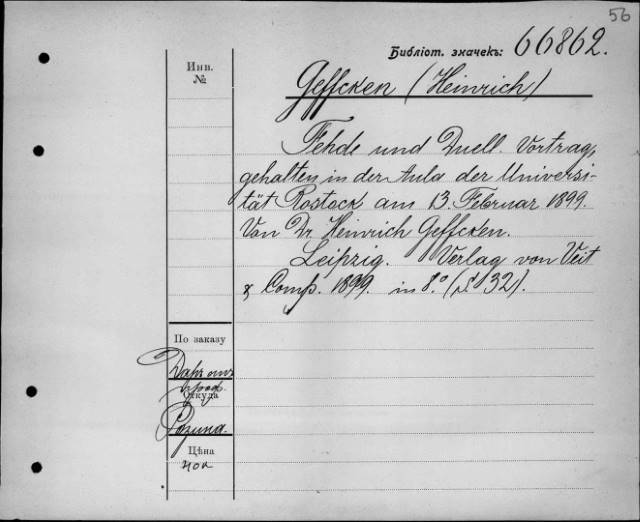 56
Библіот. значекъ: 66862.
Инв.
№
Geffcken (Heinrich)
Fehde und Duell. Vortrag,
gehalten in der Aula der Universi-
tät Rostock am 13. Februar 1899.
Von Dr. Heinrich Geffcken.
Leipzig. Verlag von Veit
& Comp. 1899. in 8.° (S. 32).
По заказу
Даръ отъ
проф.
Откуда
Розина.
Цѣна
40к